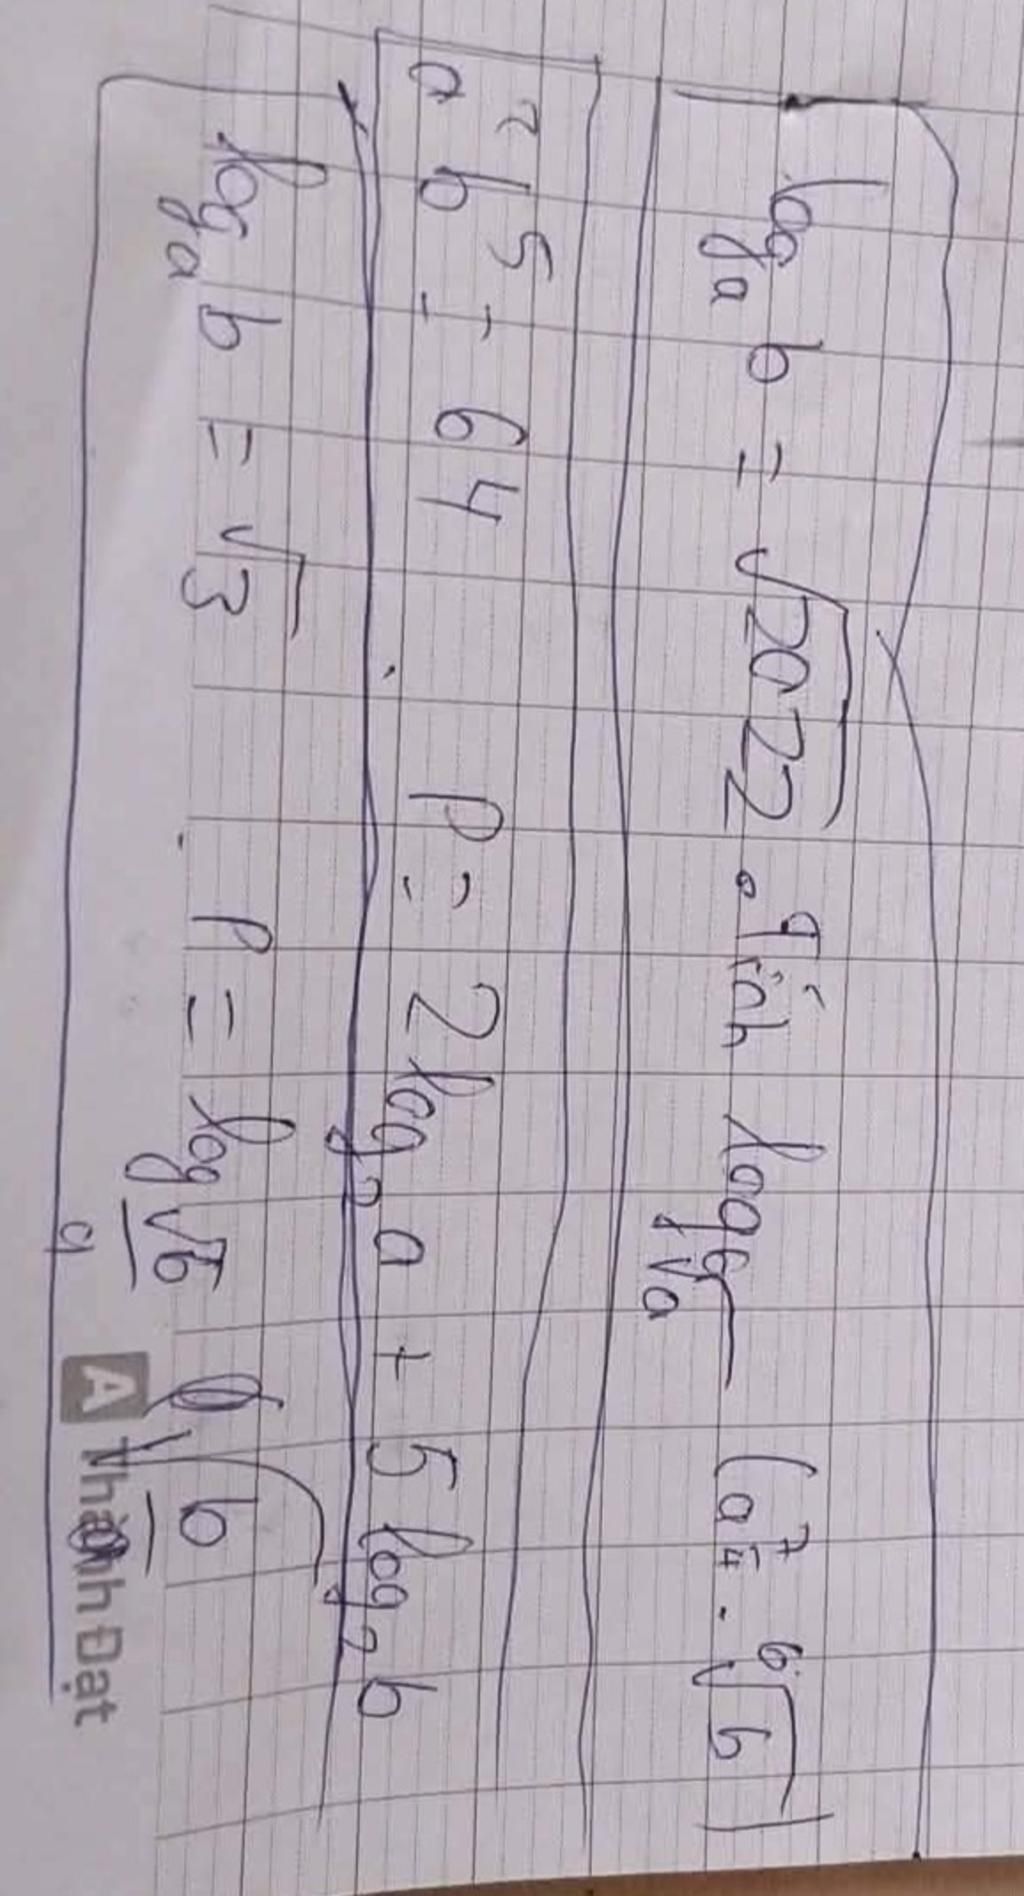 log_a b = √2022. Tính log_{⁶√a} (a^{7/4} . ⁶√b)
a² b⁵ = 64 P = 2 log₂ a + 5 log₂ b
log_a b = √3 P = log_{√b/a} √b/
A Thành Đạt